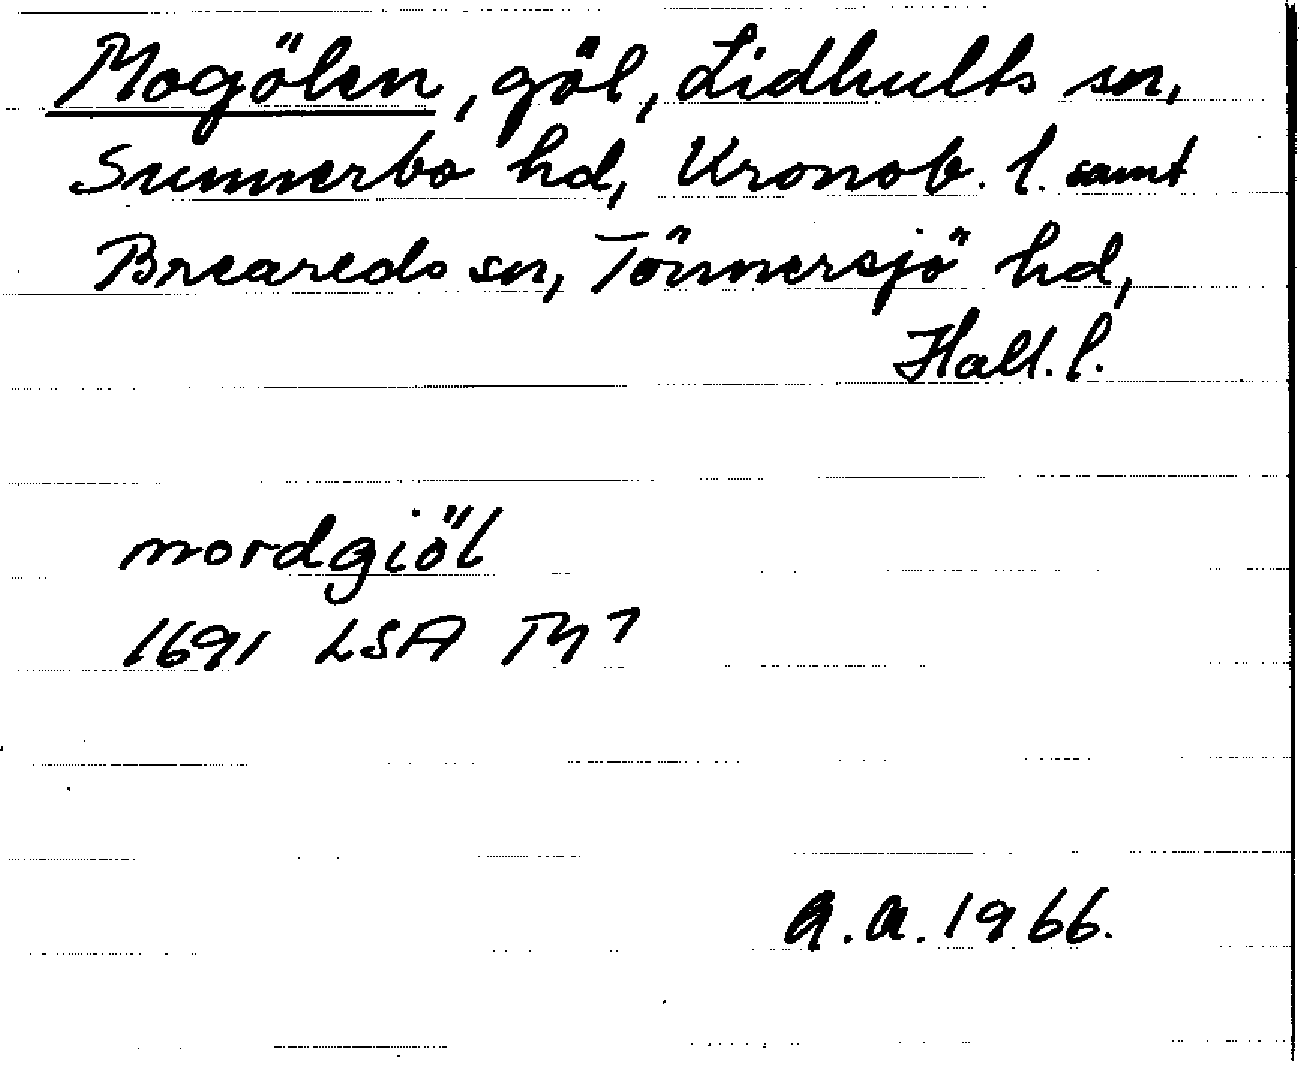 Mogölen, göl, Lidhults sn,
Sunnerbo hd, Kronob. l. samt
Breareds sn, Tönnersjö hd,
Hall. l.
mordgiöl
1691 LSA M7
A.A. 1966.